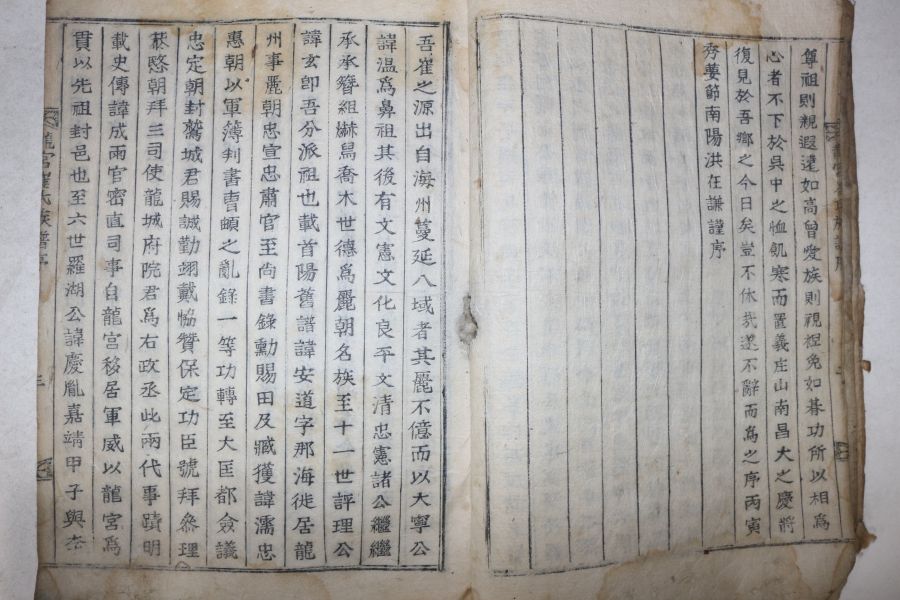 尊祖則親遐遠如高曾愛族則視袒免如朞功所以相爲
心者不下於吳中之恤飢寒而置義庄山南昌大之慶將
復見於吾鄉之今日矣豈不休哉遂不辭而爲之序丙寅
秀葽節南陽洪在謙謹序
吾崔之源出自海州蔓延八域者其麗不億而以大寧公
諱溫爲鼻祖其後有文憲文化良平文清忠憲諸公繼繼
承承簪組爀舃喬木世德爲麗朝名族至十一世評理公
諱玄卽吾分派祖也載首陽舊譜諱安道字那海徙居龍
州事麗朝忠宣忠肅官至尙書錄勳賜田及臧獲諱濡忠
惠朝以軍簿判書曺頔之亂錄一等功轉至大匡都僉議
忠定朝封鷲城君賜誠勤翊戴恊贊保定功臣號拜叅理
恭愍朝拜三司使龍城府院君爲右政丞此兩代事蹟明
載史傳諱成雨官密直司事自龍宮移居軍威以龍宮爲
貫以先祖封邑也至六世羅湖公諱慶胤嘉靖甲子與
龍宮崔氏族譜序
三